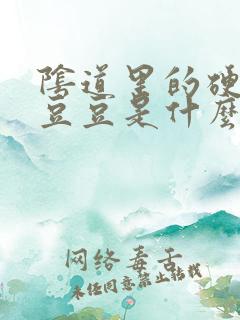 陰道里的硬
豆豆是什麼
网络毒舌
未经同意禁止转载